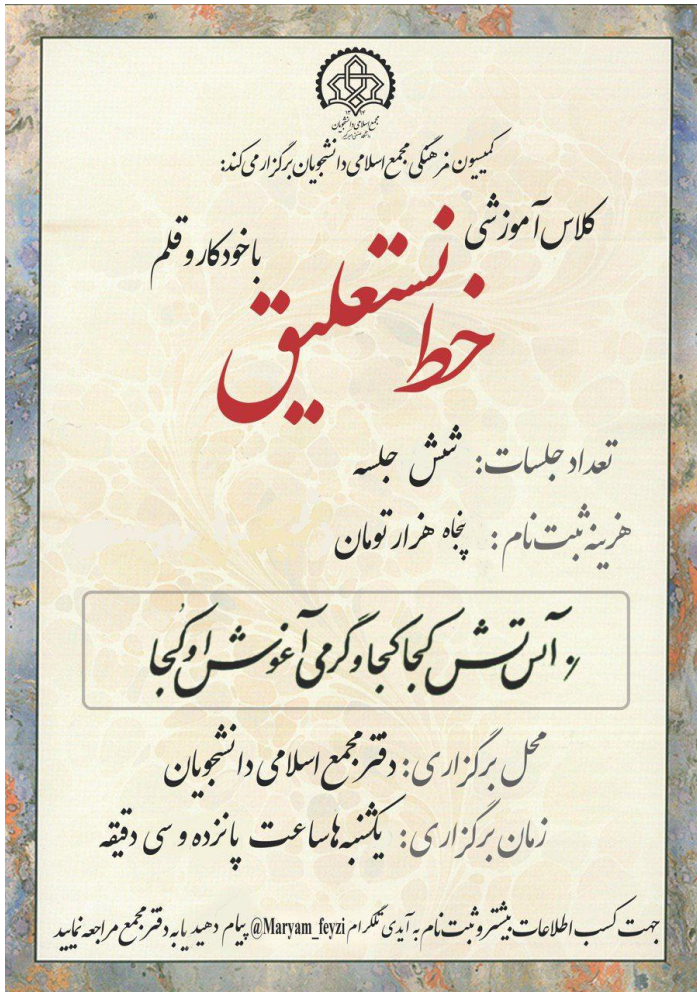 ۱۳ ۴۲
مجمع اسلامی دانشجویان
کمیسیون فرهنگی مجمع اسلامی دانشجویان برگزار می‌کند:
کلاس آموزشی
خط نستعلیق
با خودکار و قلم
تعداد جلسات: شش جلسه
هزینه ثبت نام: پنجاه هزار تومان
آتش کجا کجا و گرمی آغوش او کجا
محل برگزاری: دفتر مجمع اسلامی دانشجویان
زمان برگزاری: یکشنبه‌ها ساعت پانزده و سی دقیقه
جهت کسب اطلاعات بیشتر و ثبت نام به آیدی تلگرام @Maryam_feyzi پیام دهید یا به دفتر مجمع مراجعه نمایید